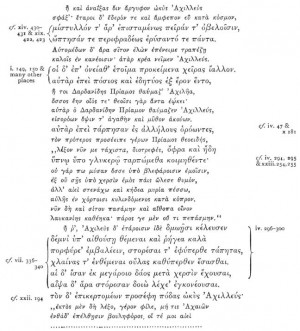 ἦ καὶ ἀναΐξας ὄιν ἄργυφον ὠκὺς Ἀχιλλεὺς
σφάξ'· ἕταροι δ' ἔδερόν τε καὶ ἄμφεπον εὖ κατὰ κόσμον,
cf. xiv. 430-
431 & xix.
422, 423
μίστυλλόν τ' ἄρ' ἐπισταμένως πεῖράν τ' ὀβελοῖσιν,
ὄπτησάν τε περιφραδέως ἐρύσαντό τε πάντα.
Αὐτομέδων δ' ἄρα σῖτον ἑλὼν ἐπένειμε τραπέζῃ
καλοῖς ἐν κανέοισιν· ἀτὰρ κρέα νεῖμεν Ἀχιλλεύς.
i. 149, 150 &
many other
places
οἱ δ' ἐπ' ὀνείαθ' ἑτοῖμα προκείμενα χεῖρας ἴαλλον.
αὐτὰρ ἐπεὶ πόσιος καὶ ἐδητύος ἐξ ἔρον ἕντο,
ἤ τοι Δαρδανίδης Πρίαμος θαύμαζ' Ἀχιλῆα,
ὅσσος ἔην οἷός τε· θεοῖσι γὰρ ἄντα ἐῴκει·
αὐτὰρ ὁ Δαρδανίδην Πρίαμον θαύμαζεν Ἀχιλλεύς,
εἰσορόων ὄψιν τ' ἀγαθὴν καὶ μῦθον ἀκούων.
cf. iv. 47 &
x 181
αὐτὰρ ἐπεὶ τάρπησαν ἐς ἀλλήλους ὁρόωντες,
τὸν πρότερος προσέειπε γέρων Πρίαμος θεοειδής,
„λέξον νῦν με τάχιστα, διοτρεφές, ὄφρα καὶ ἤδη
cf. iv. 294, 295
& xxiii.254,255
ὕπνῳ ὕπο γλυκερῷ ταρπώμεθα κοιμηθέντε·
οὐ γάρ πω μύσαν ὄσσε ὑπὸ βλεφάροισιν ἐμοῖσιν,
ἐξ οὗ σῇς ὑπὸ χερσὶν ἐμὸς πάις ὤλεσε θυμόν,
ἀλλ' αἰεὶ στενάχω καὶ κήδεα μυρία πέσσω,
αὐλῆς ἐν χόρτοισι κυλινδόμενος κατὰ κόπρον.
νῦν δὴ καὶ σίτου πασάμην καὶ αἴθοπα οἶνον
λαυκανίης καθέηκα· πάρος γε μὲν οὔ τι πεπάσμην."
iv. 296-300
ἦ ῥ', Ἀχιλεὺς δ' ἑτάροισιν ἰδὲ δμῳῇσι κέλευσεν
cf. vii. 336-
340
δέμνι' ὑπ' αἰθούσῃ θέμεναι καὶ ῥήγεα καλὰ
πορφύρε' ἐμβαλέειν, στορέσαι τ' ἐφύπερθε τάπητας,
χλαίνας τ' ἐνθέμεναι οὔλας καθύπερθεν ἕσασθαι.
αἱ δ' ἴσαν ἐκ μεγάροιο δάος μετὰ χερσὶν ἔχουσαι,
αἶψα δ' ἄρα στόρεσαν δοιὼ λέχε' ἐγκονέουσαι.
cf. xxii. 194
τὸν δ' ἐπικερτομέων προσέφη πόδας ὠκὺς Ἀχιλλεύς·
„ἐκτὸς μὲν δὴ λέξο, γέρον φίλε, μή τις Ἀχαιῶν
ἐνθάδ' ἐπέλθῃσιν βουληφόρος, οἵ τέ μοι αἰεὶ